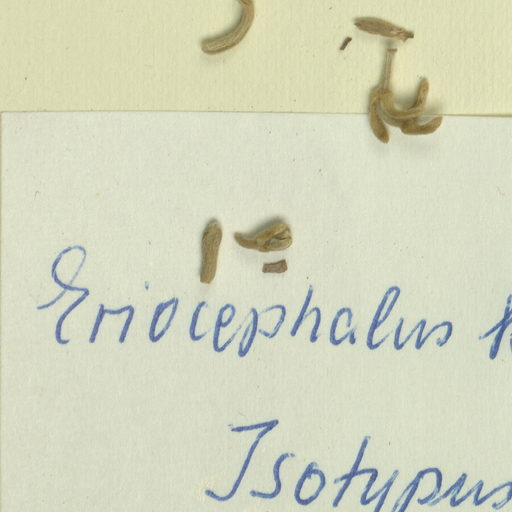 Eriocephalus
Isotypus